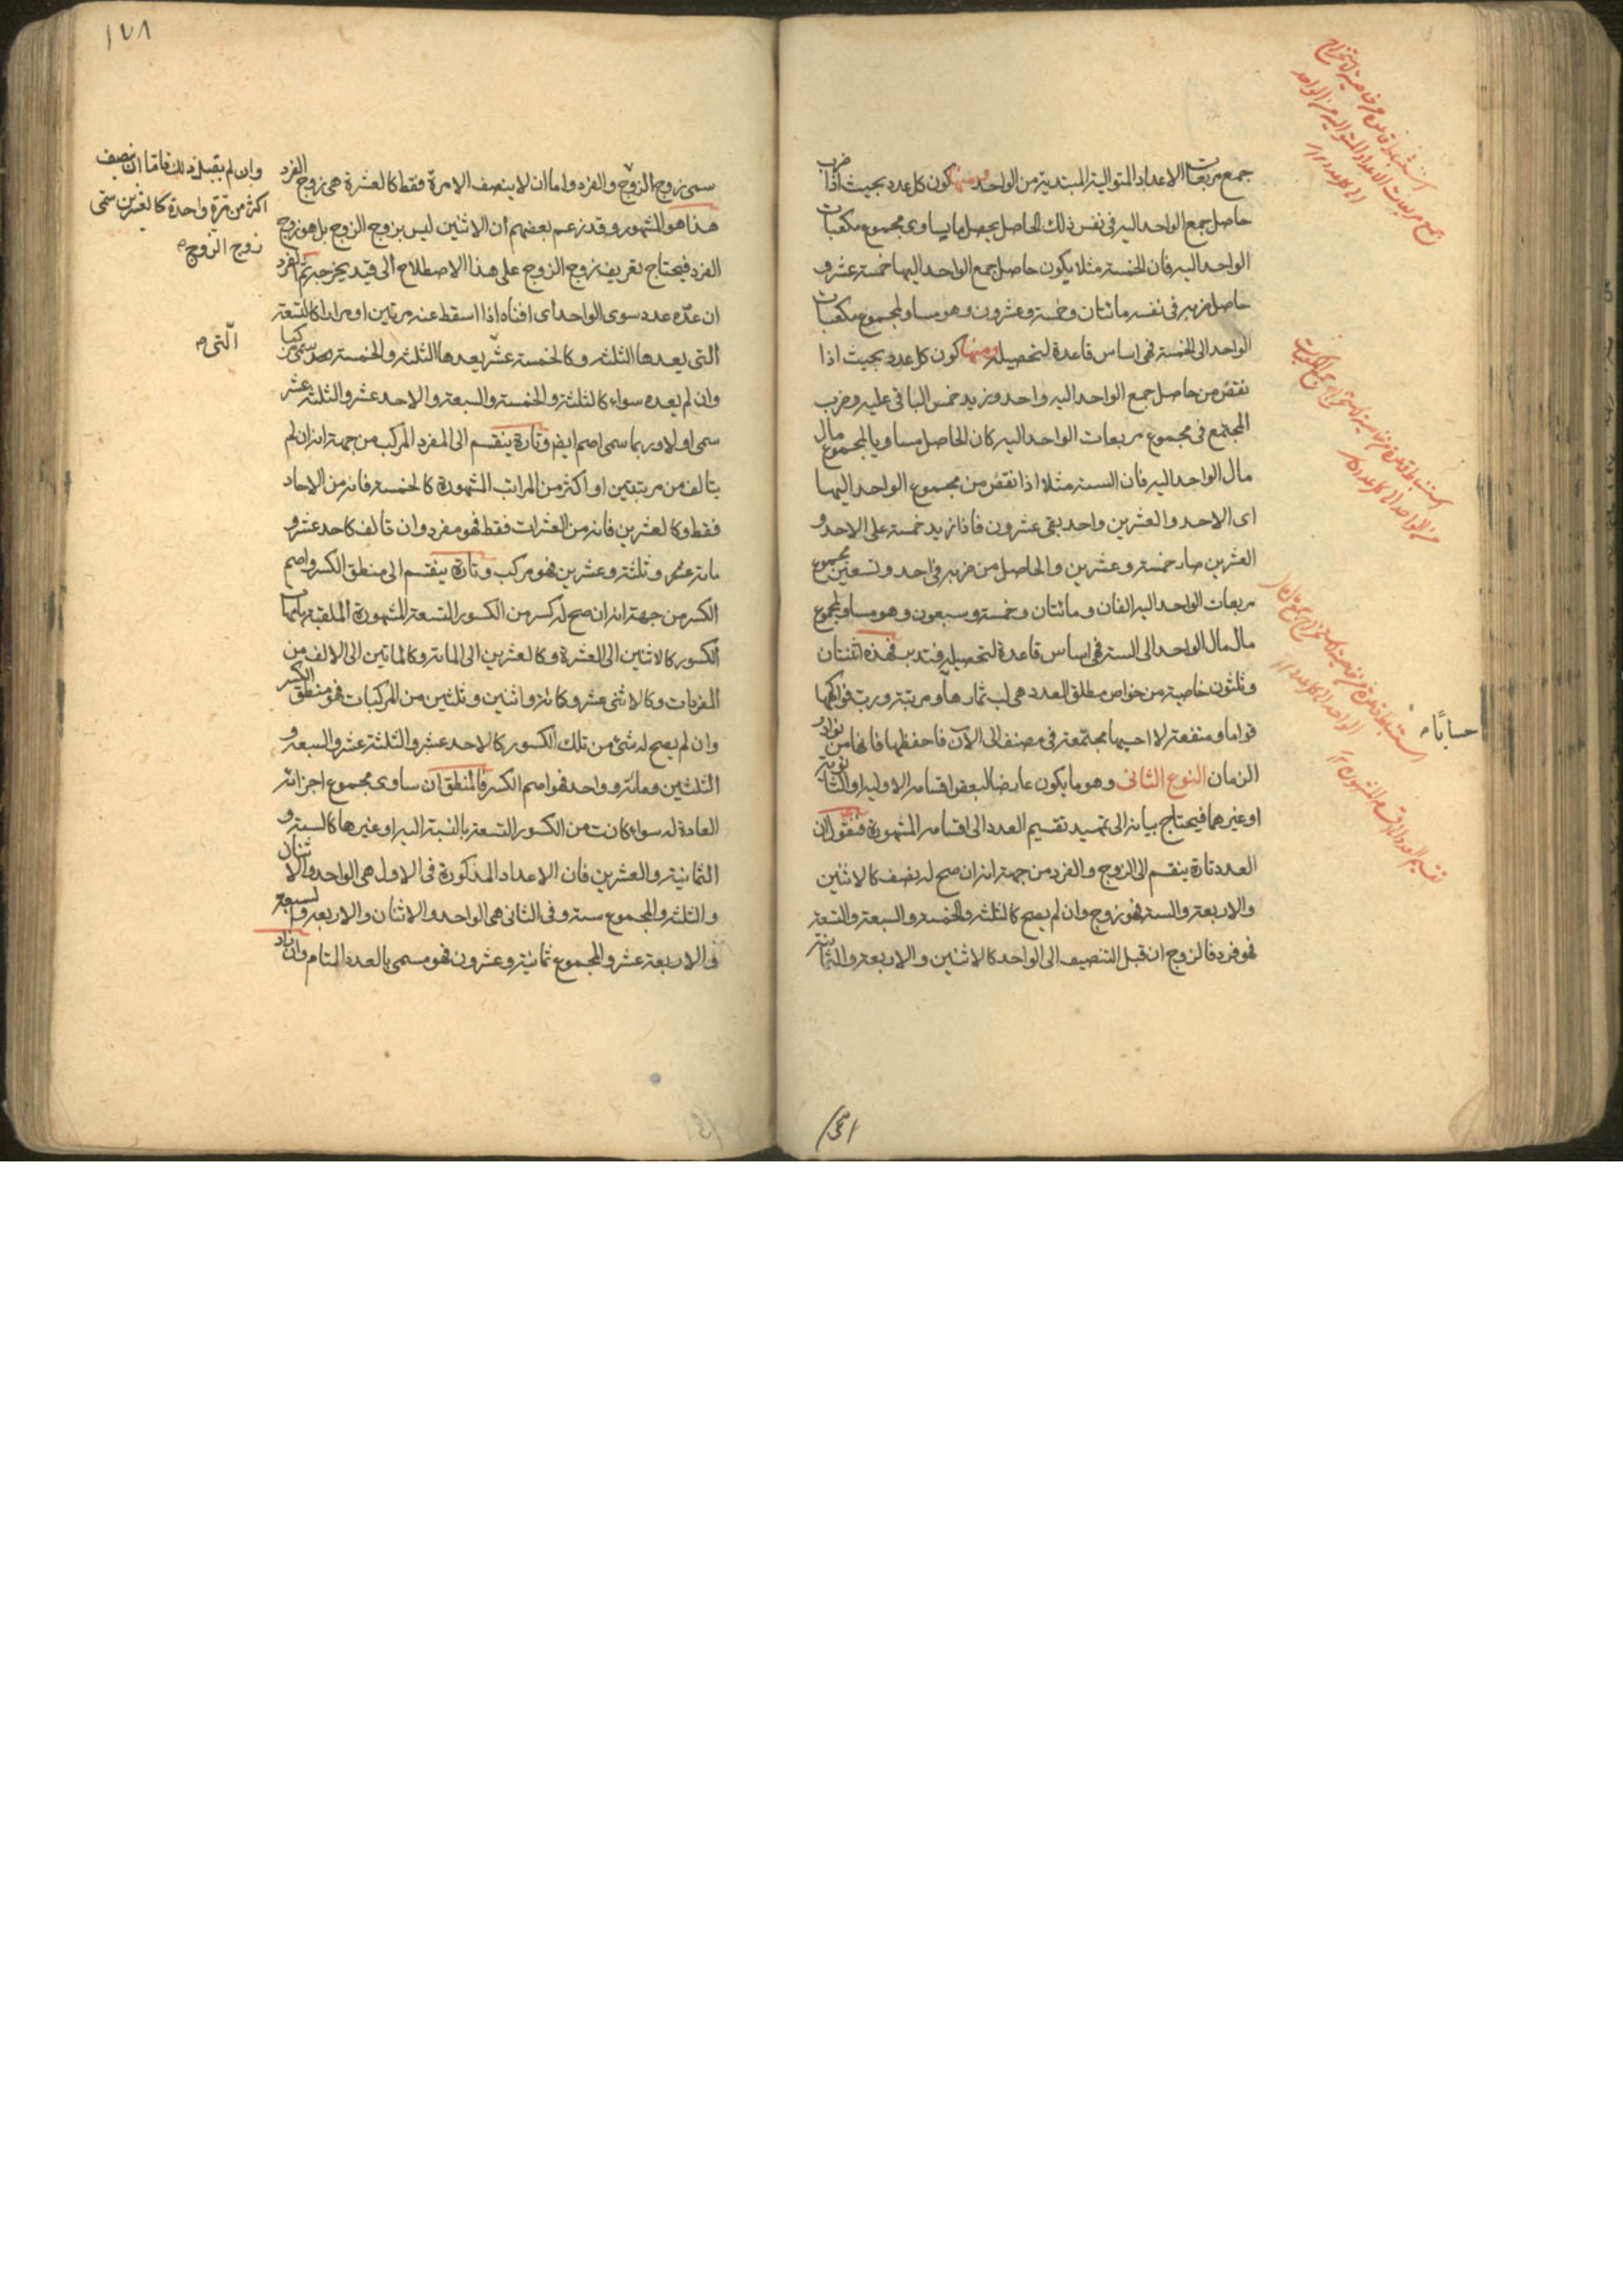 جمع مربعات الاعداد المتوالية المبتدية من الواحد ومنها كون كل عدد بحيث اذا ضرب
حاصل جمع الواحد اليه فى نفس ذلك الحاصل يحصل ما يساوى مجموع مكعبات
الواحد اليه فان الخمسة مثلا يكون حاصل جمع الواحد اليها خمسة عشر و
حاصل ضربه فى نفسه مائتان وخمسة وعشرون وهو مساو لمجموع مكعبات
الواحد الى الخمسة فهى اساس قاعدة لتحصيله ومنها كون كل عدد بحيث اذا
نقص من حاصل جمع الواحد اليه واحد وزيد خمس الباقى عليه وضرب
المجتمع فى مجموع مربعات الواحد اليه كان الحاصل مساويا لمجموع مال
مال الواحد اليه فان الستة مثلا اذا نقص من مجموع الواحد اليها
اى الاحد والعشرين واحد بقى عشرون فاذا زيد خمسة على الاحد و
العشرين صار خمسة وعشرين والحاصل من ضربه فى احد وتسعين مجموع
مربعات الواحد اليه الفان ومائتان وخمسة وسبعون وهو مساو لمجموع
مال مال الواحد الى الستة فهى اساس قاعدة لتحصيله فتدبر فهذه اثنتان
وثلثون خاصية من خواص مطلق العدد هى لب ثمارها ومرتبة وربت فواكهها
قواما ومنفعة لا احسبها مجتمعة فى مصنف الى الآن فاحفظها فانها من نوادر
الزمان النوع الثانى وهو ما يكون عارضا لبعض اقسامه الاولية او الثانوية
او غيرهما فيحتاج بيانه الى تمهيد تقسيم العدد الى اقسامه المشهورة فنقول ان
العدد تارة ينقسم الى الزوج والفرد من جهة انه ان صح له نصف كالاثنين
والاربعة والستة فهو زوج وان لم يصح كالثلثة والخمسة والسبعة والتسعة
فهو فرد فالزوج ان قبل التنصيف الى الواحد كالاثنين والاربعة والثمانية
حسابًا
١٧٨
سمى زوج الزوج والفرد واما ان لا ينصف الا مرة فقط كالعشرة هى زوج الفرد
هذا هو المشهور وقد زعم بعضهم ان الاثنين ليس بزوج الزوج بل هو زوج
الفرد فيحتاج تعريف زوج الزوج على هذا الاصطلاح الى قيد يخرجه ثم الفرد
ان عدّه عدد سوى الواحد اى افناه اذا اسقط عنه مرتين او مرارا كالتسعة
التى يعدها الثلثة وكالخمسة عشر يعدها الثلثة والخمسة سمى مركبا
وان لم يعده سواه كالثلثة والخمسة والسبعة والاحد عشر والثلثة عشر
سمى اولا وربما سمى اصم ايضا وتارة ينقسم الى المفرد المركب من جهة انه ان لم
يتالف من مرتبتين او اكثر من المراتب المشهورة كالخمسة فانه من الاحاد
فقط وكالعشرين فانه من العشرات فقط فهو مفرد وان تالف كاحد عشر و
مائة وثلثة وعشرين فهو مركب وتارة ينقسم الى منطق الكسر واصم
الكسر من جهة انه ان صح له كسر من الكسور التسعة المشهورة الملقبة بامهات
الكسور كالاثنين الى العشرة وكالعشرين الى المائة وكالمائتين الى الالف من
المفردات وكالاثنى عشر وكمائة واثنين وثلثين من المركبات فهو منطق الكسر
وان لم يصح له شئ من تلك الكسور كالاحد عشر والثلثة عشر والسبعة و
الثلثين ومائة وواحد فهو اصم الكسر فالمنطق ان ساوى مجموع اجزائه
العادة له سواء كانت من الكسور التسعة بالنسبة اليه او غيرها كالستة و
الثمانية والعشرين فان الاعداد المذكورة فى الاول هى الواحد والاثنان
والثلثة والمجموع ستة وفى الثانى هى الواحد والاثنان والاربعة والسبعة
والاربعة عشر والمجموع ثمانية وعشرون فهو مسمى بالعدد التام وان زاد
وان لم يقبل ذلك فاما ان ينصف
اكثر من مرة واحدة كالعشرين سمى
زوج الزوج
التى